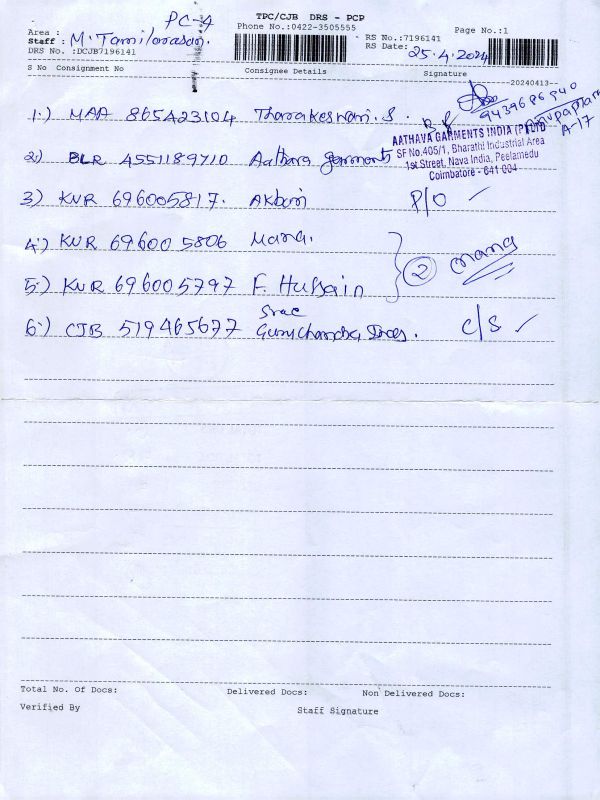 PC-4
TPC/CJB DRS - PCP
Area : Phone No.:0422-3505555 Page No.:1
Staff : M. Tamilarasan. RS No.:7196141
DRS No. :DCJB7196141 RS Date: 25.4.2024
S No Consignment No Consignee Details Signature
20240413
1.) MAA 865A23104 Tharakeswari. S. 9439686940
A-17
2.) BLR 4551189710 Aathava garments
AATHAVA GARMENTS INDIA (P) LTD
SF No.405/1, Bharathi Industrial Area
1st Street, Nava India, Peelamedu
Coimbatore - 641 004
3) KNR 696005817. Akbari P/O
4.) KNR 696005806 Mana. 2 mana
5.) KNR 696005797 F. Hussain
6.) CJB 519465677 Sree Guruchandra Dras. C/S
Total No. Of Docs: Delivered Docs: Non Delivered Docs:
Verified By Staff Signature